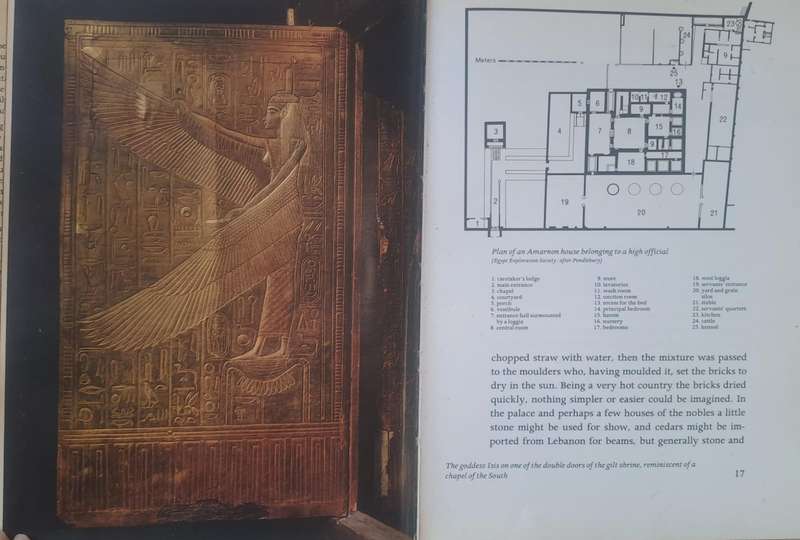 Meters
1
2
3
4
5
6
7
8
9
10 11
12
13
14
15
16
17
18
19
20
21
22
23
24
25
9
9
Plan of an Amarnon house belonging to a high official
(Egypt Exploration Society: after Pendlebury)
1. caretaker's lodge
2. main entrance
3. chapel
4. courtyard
5. porch
6. vestibule
7. entrance hall surmounted
by a loggia
8. central room
9. store
10. lavatories
11. wash room
12. unction room
13. recess for the bed
14. principal bedroom
15. harem
16. nursery
17. bedrooms
18. west loggia
19. servants' entrance
20. yard and grain
silos
21. stable
22. servants' quarters
23. kitchen
24. cattle
25. kennel
chopped straw with water, then the mixture was passed
to the moulders who, having moulded it, set the bricks to
dry in the sun. Being a very hot country the bricks dried
quickly, nothing simpler or easier could be imagined. In
the palace and perhaps a few houses of the nobles a little
stone might be used for show, and cedars might be im-
ported from Lebanon for beams, but generally stone and
The goddess Isis on one of the double doors of the gilt shrine, reminiscent of a
chapel of the South
17